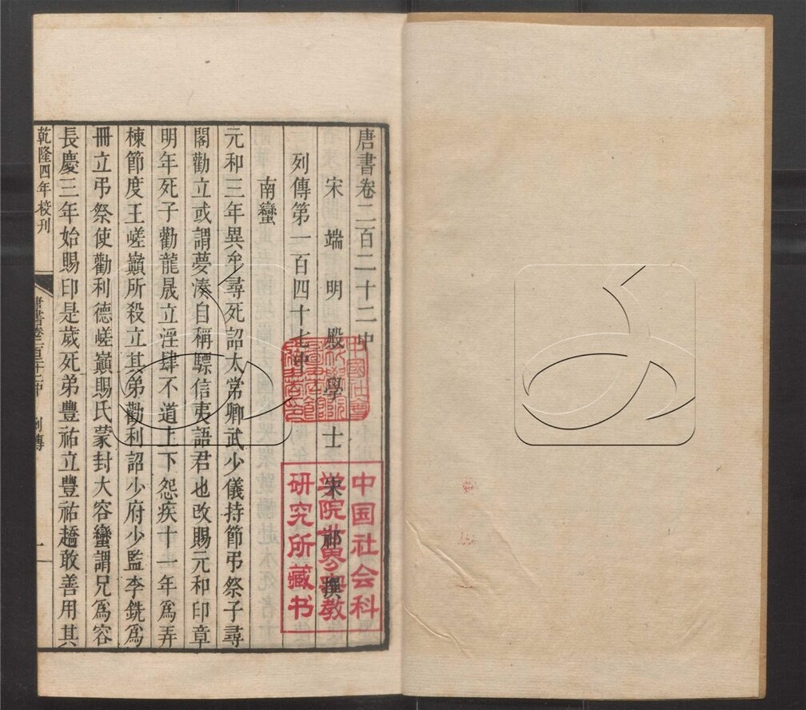 唐書卷二百二十二中
宋端明殿學士宋祁撰
列傳第一百四十七中
南蠻
元和三年異牟尋死詔太常卿武少儀持節弔祭子尋
閣勸立或謂夢湊自稱驃信夷語君也改賜元和印章
明年死子勸龍晟立淫肆不道上下怨疾十一年為弄
棟節度王嵯巔所殺立其弟勸利詔少府少監李銑為
冊立弔祭使勸利德嵯巔賜氏蒙封大容蠻謂兄為容
長慶三年始賜印是歲死弟豐祐立豐祐趫敢善用其
乾隆四年校刊
唐書卷二百二十二中 列傳 一
中国社会科
学院世界宗教
研究所藏书